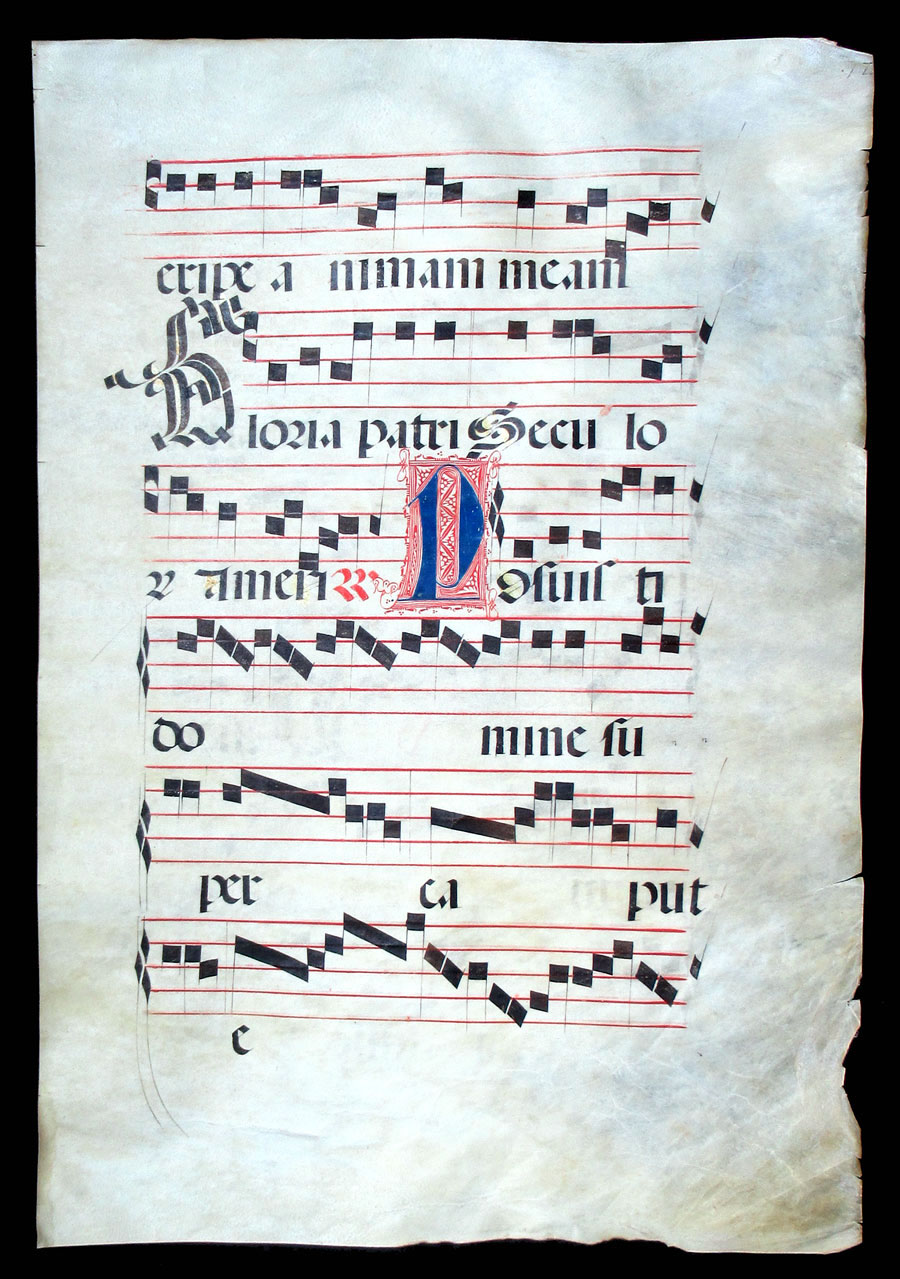 eripe a nimam meam
Gloria patri Secu lo
r Amen R Posuis ti
do mine su
per ca put
e